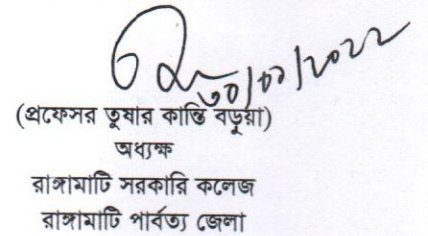 ৩০/০৬/২০২২
(প্রফেসর তুষার কান্তি বড়ুয়া)
অধ্যক্ষ
রাঙ্গামাটি সরকারি কলেজ
রাঙ্গামাটি পার্বত্য জেলা